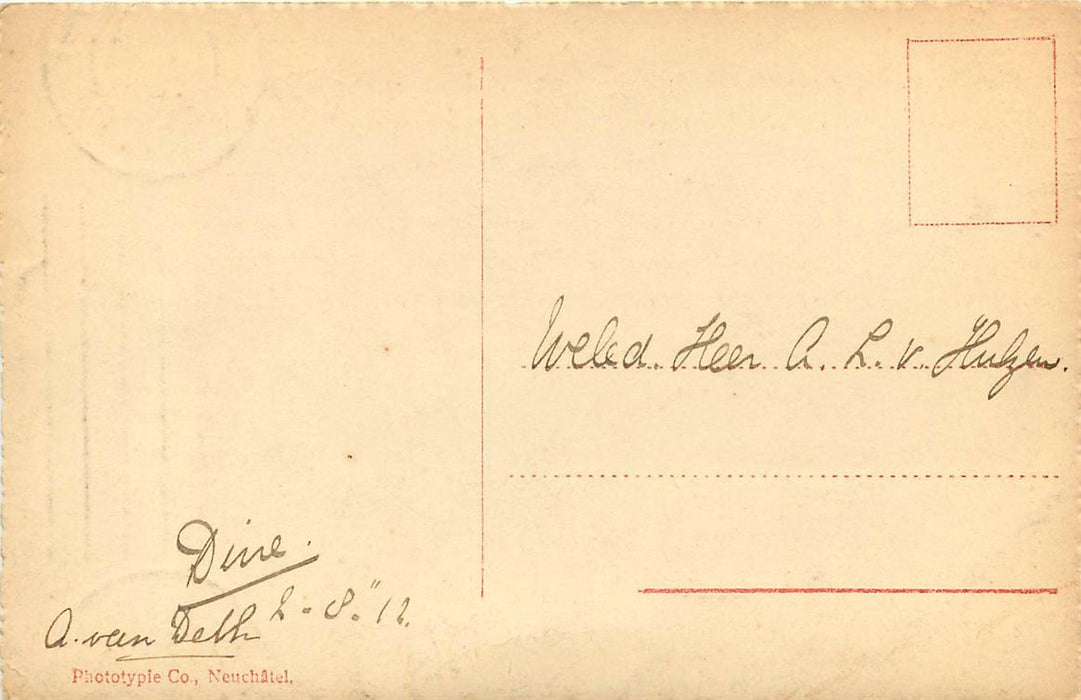 Weled. Heer A. L. v. Hulzen.
Dine.
2-8-"12.
A. van Deth
Phototypie Co., Neuchâtel.